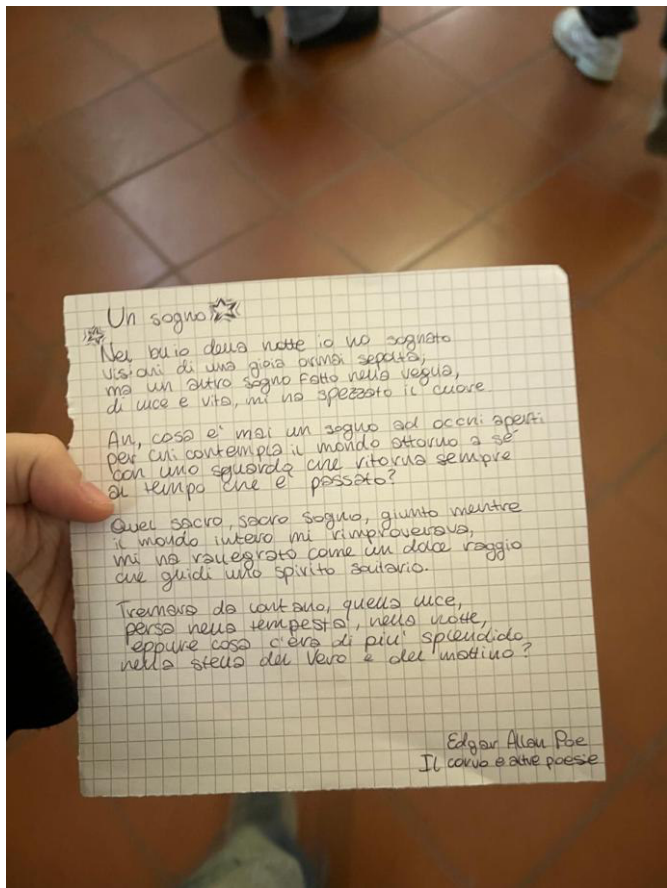 Un sogno
Nel buio della notte io ho sognato
visioni di una gioia ormai sepolta,
ma un altro sogno fatto nella veglia,
di luce e vita, mi ha spezzato il cuore
Ah, cosa e' mai un sogno ad occhi aperti
per chi contempla il mondo attorno a sé
con uno sguardo che ritorna sempre
al tempo che e' passato?
Quel sacro, sacro sogno, giunto mentre
il mondo intero mi rimproverava,
mi ha rallegrato come un dolce raggio
che guidi uno spirito solitario.
Tremava da lontano, quella luce,
persa nella tempesta, nella notte,
eppure cosa c'era di piu' splendido
nella stella del Vero e del mattino?
Edgar Allan Poe
Il corvo e altre poesie